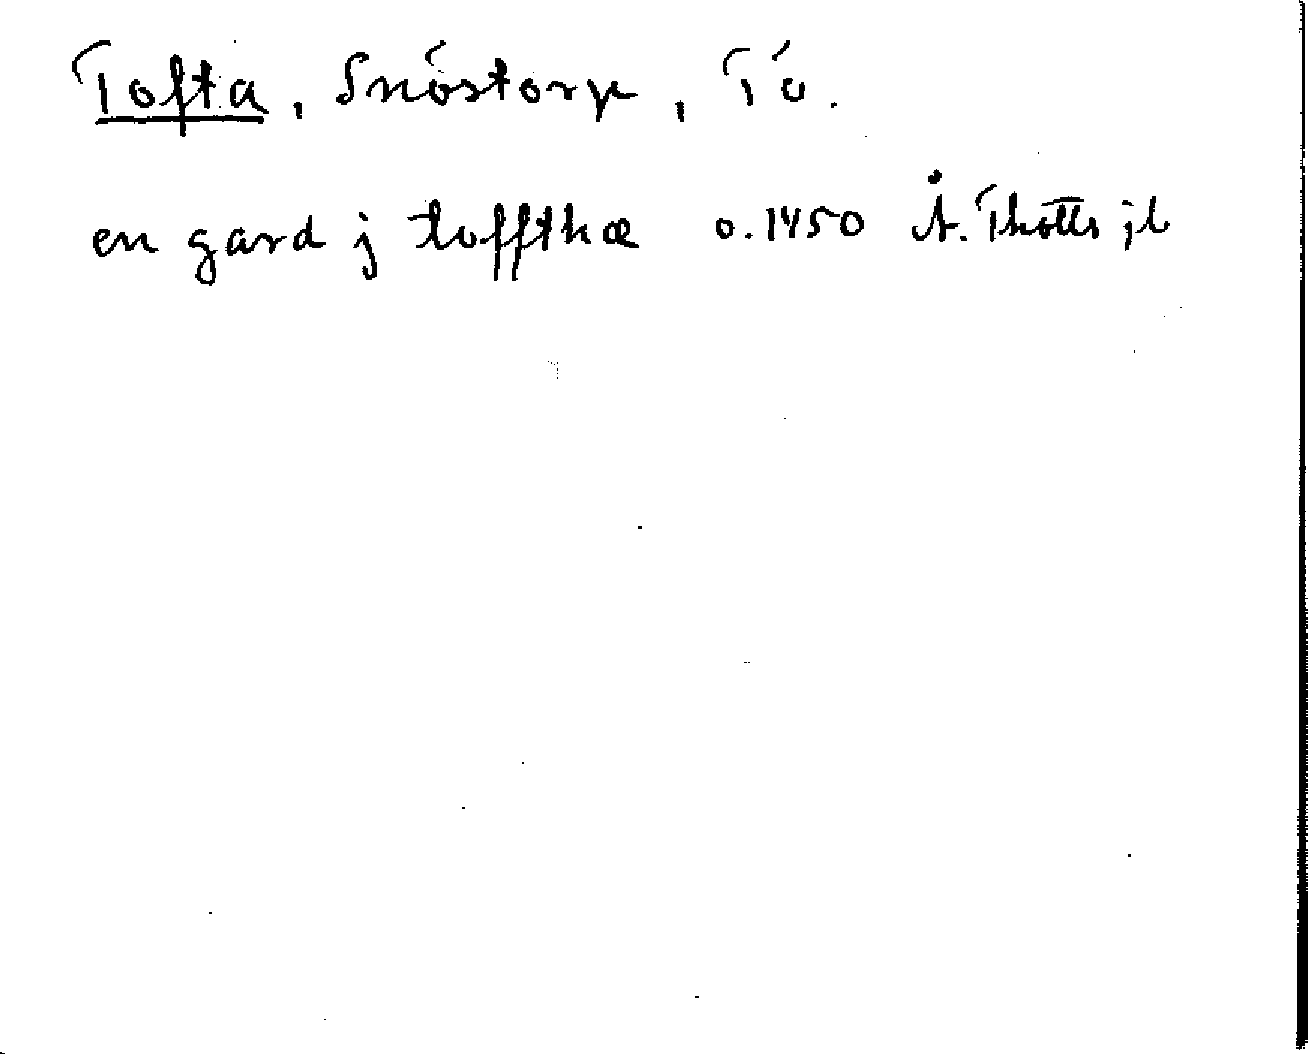 Tofta, Snöstorp, Tö.
en gard j toffthæ o. 1450 Å. Thotts jb